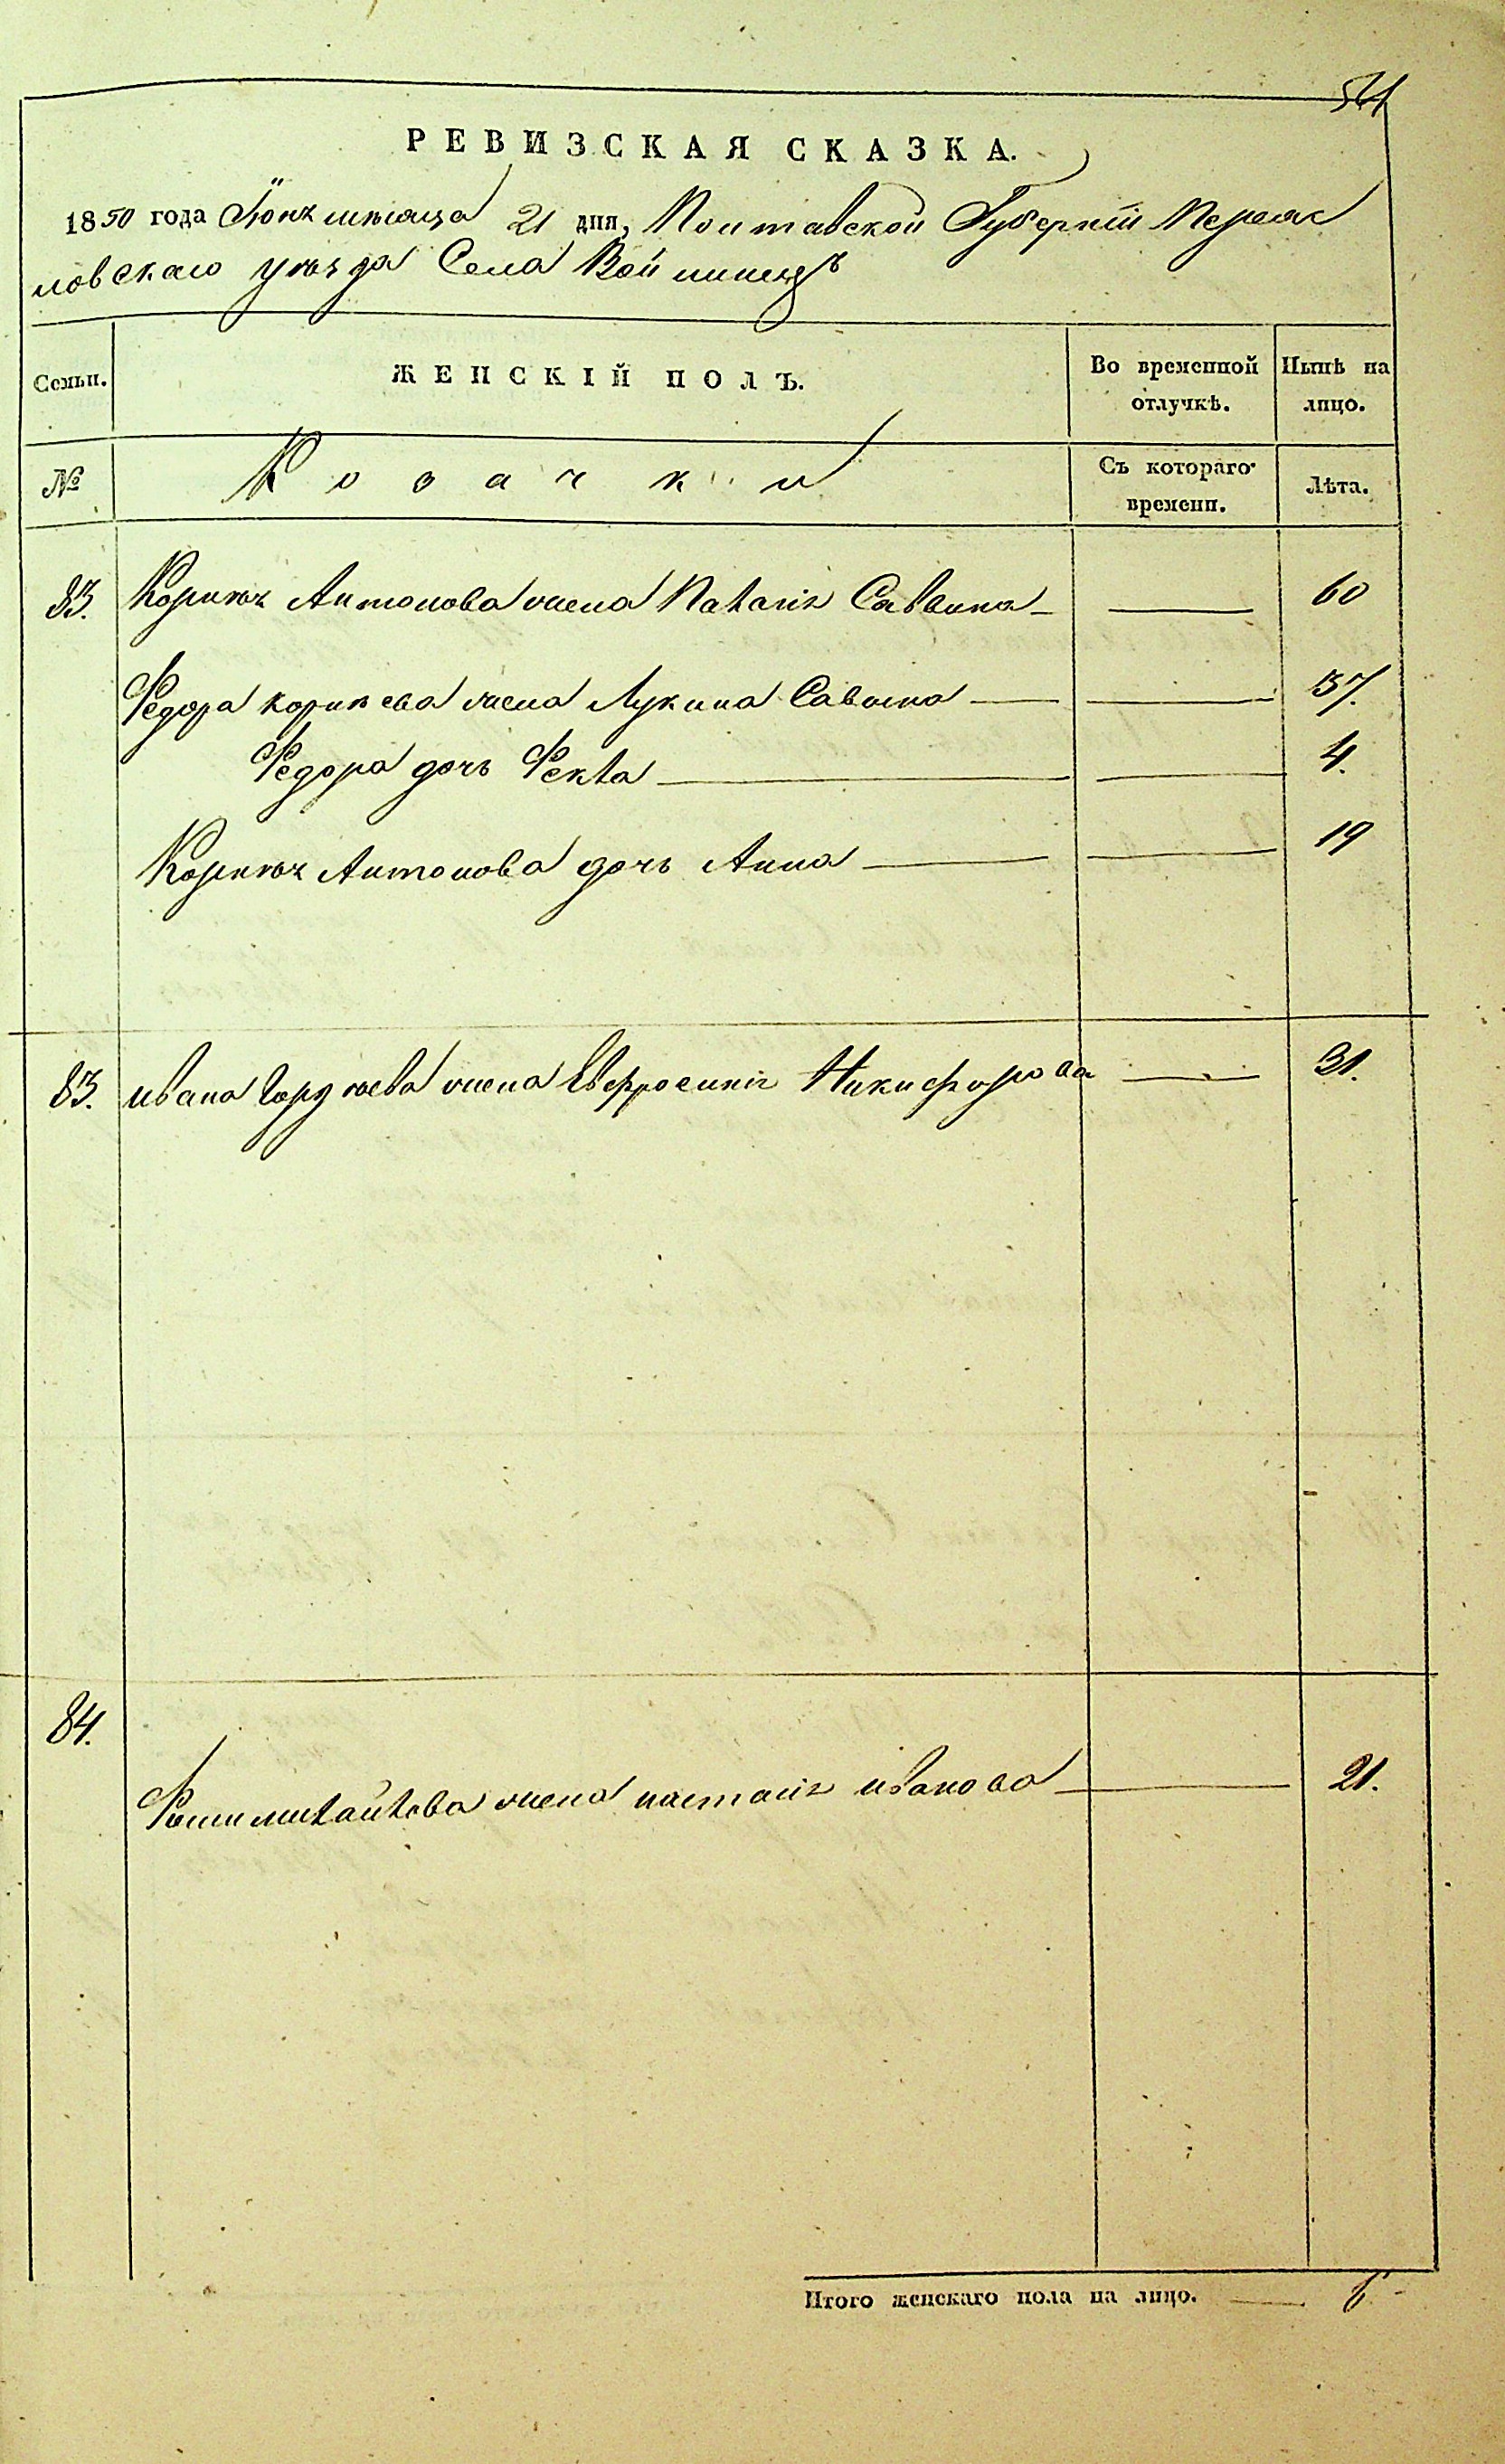 541
РЕВИЗСКАЯ СКАЗКА.
1850 года Іюня мѣсяца 21 дня, Полтавской Губерніи Переяс
ловскаго уѣзда Села Войтинецъ
Семьи. ЖЕНСКІЙ ПОЛЪ. Во временной отлучкѣ. Нынѣ на лицо.
№ Козачки Съ котораго времени. Лѣта.
83. Корнѣя Антонова жена Наталія Саввина — — 60
Федора корнѣева жена Лукина Савина — — 37.
Федора дочь Фекла — — 4.
Корнѣя Антонова дочь Анна — — 19
83. ивана Гордѣева жена Евфросинія Никифорова — 31.
84.
михайлова жена наталія иванова — 21.
Итого женскаго пола на лицо. — 6